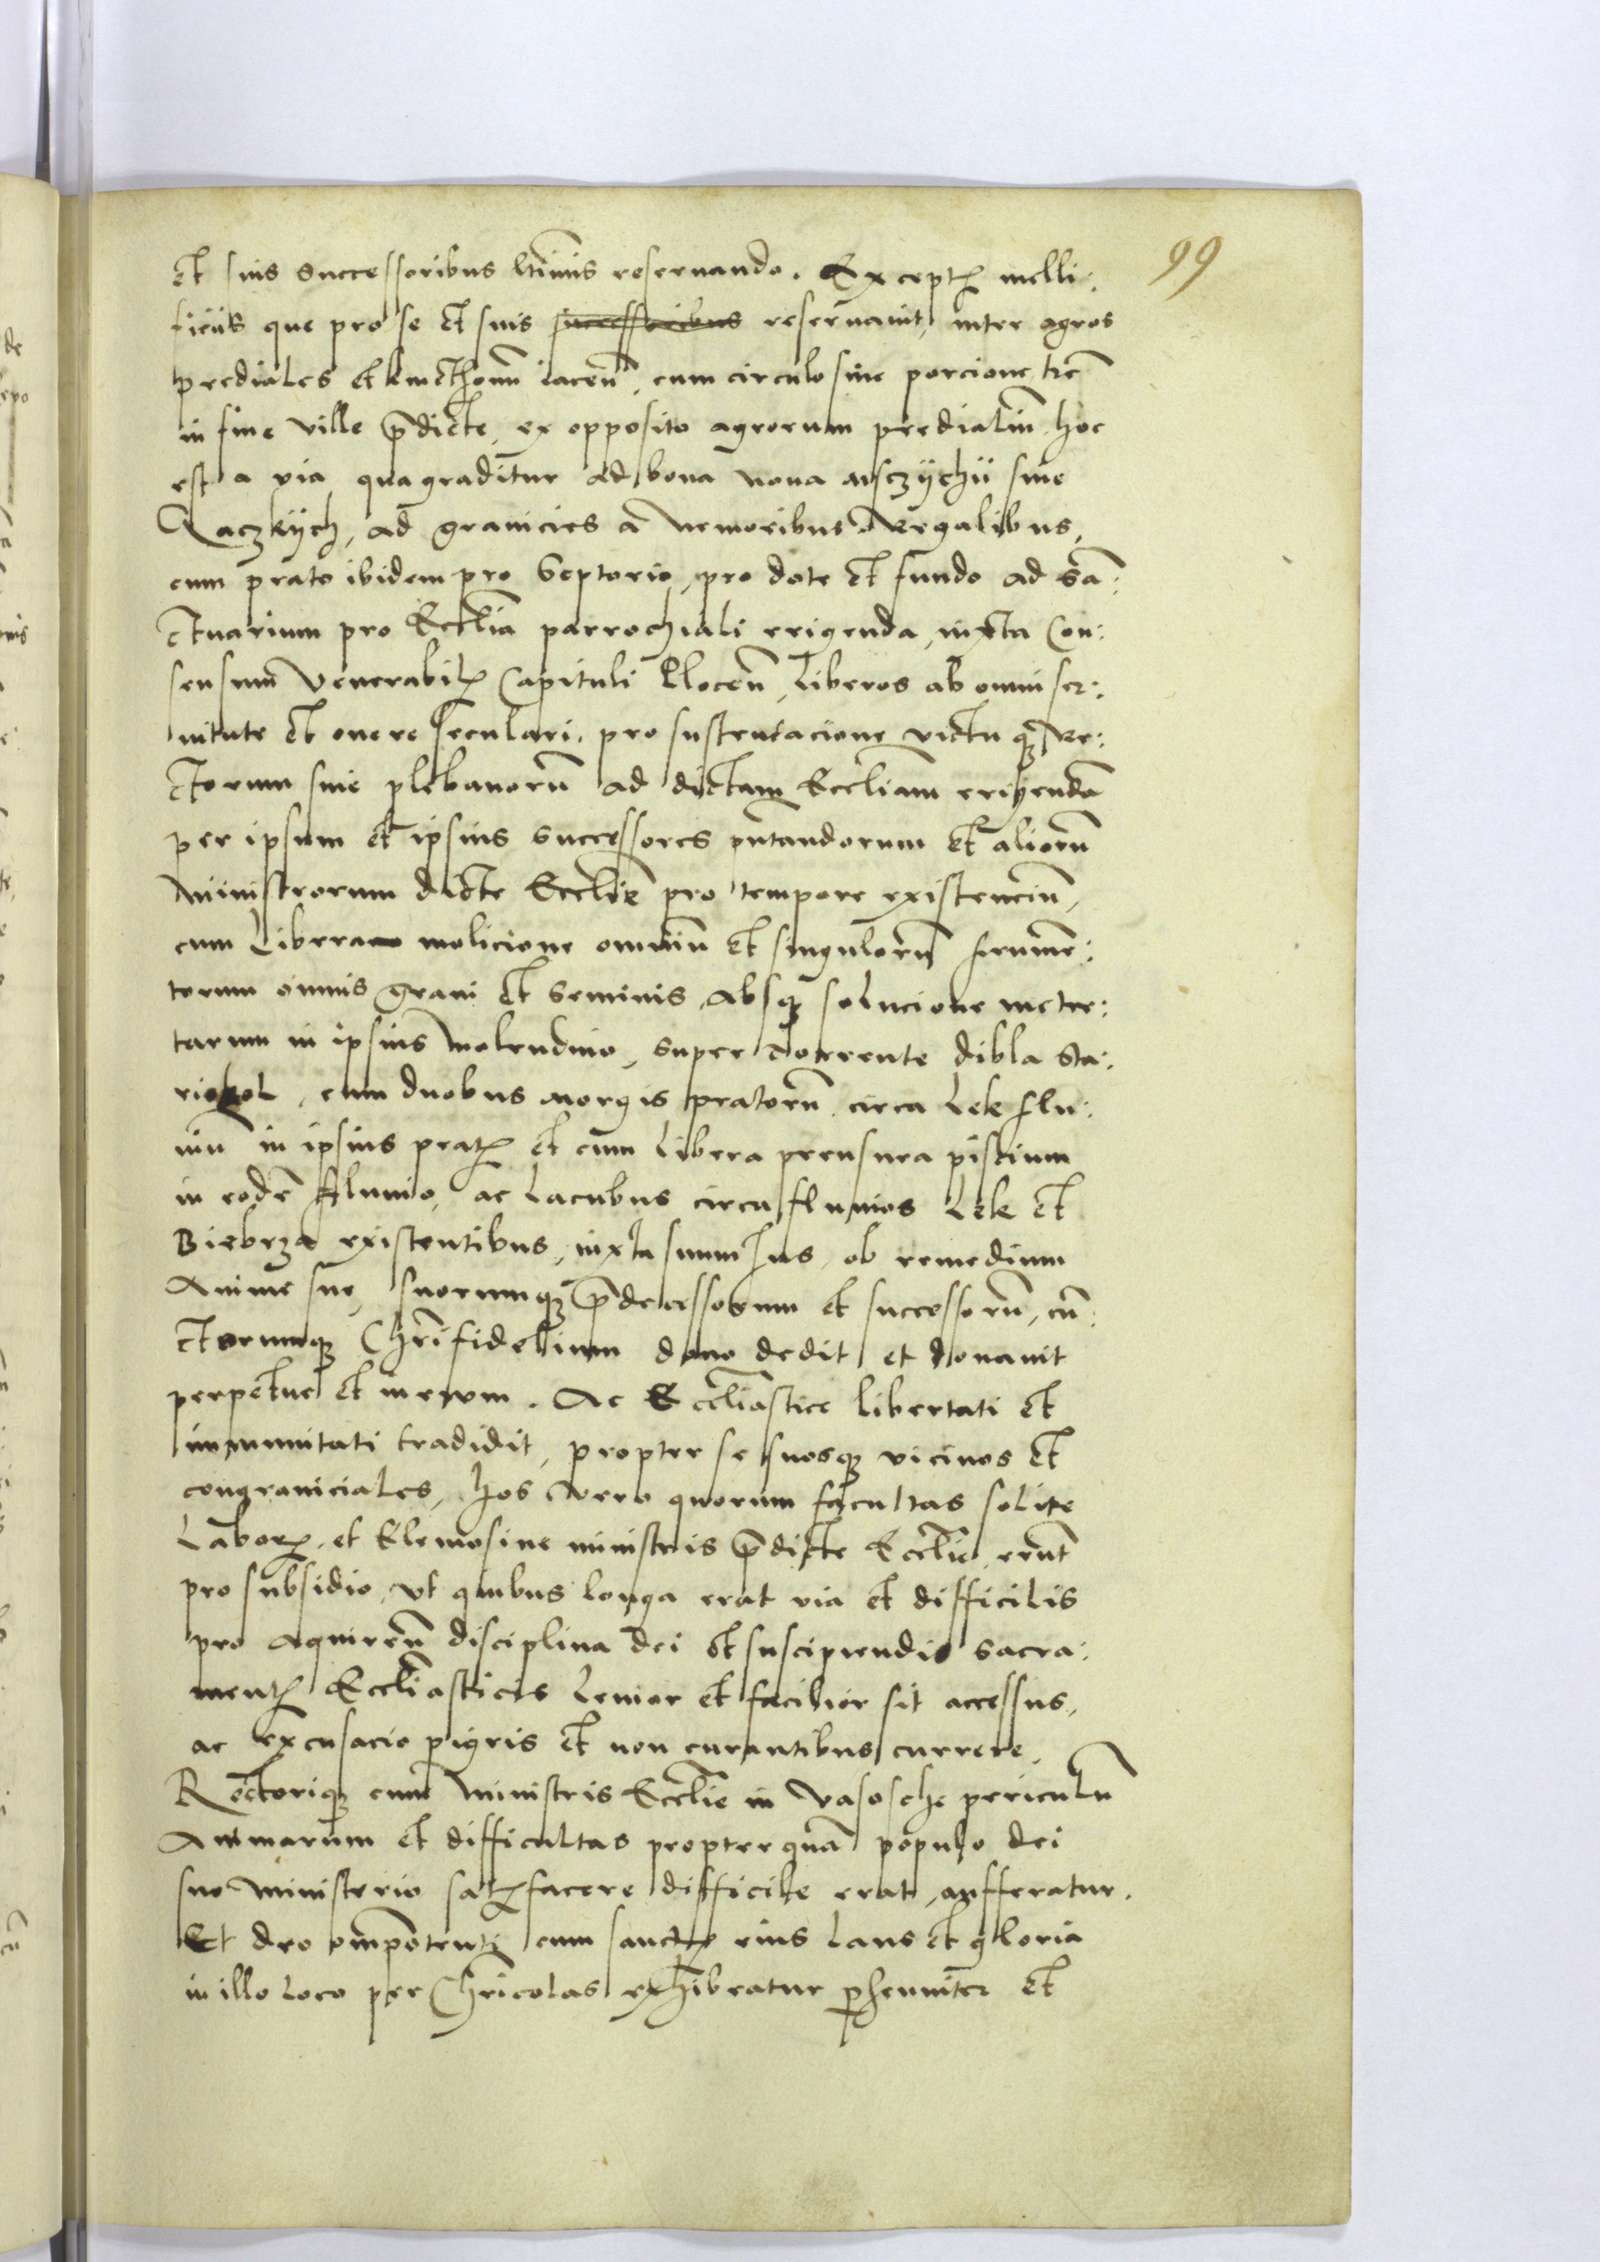 99
et suis successoribus ltimis reseruando. Except melli:
ficiis que pro se et suis successoribus reseruauit, inter agros
prediales et kmethonum iacen, cum circulo siue porcione tre
in fine ville pdicte, ex opposito agrorum predialium hoc
est a via qua graditur ad bona noua siue
Raczkych, ad granicies a nemoribus Regalibus,
cum prato ibidem pro Septorio, pro dote et fundo ad San:
ctuarium pro Ecclia parrochiali erigenda, iuxta Con:
sensum Venerabil Capituli Plocen, liberos ab omni ser:
uitute et onere seculari, pro sustentacione victuq Re:
ctorum siue plebanoru ad dictam Eccliam erigenda
per ipsum et ipsius successores pntandorum et alioru
Ministrorum dicte Ecclie pro tempore existenciu,
cum libera molicione omniu et singuloru frumen:
torum omnis grani et Seminis absq solucione metre:
tarum in ipsius Molendino, super torrente dibla Sta:
riokol, cum duobus morgis pratoru circa Lek flu:
uiu in ipsius prat et cum libera prensura piscium
in eode fluuio, ac lacubus circa fluuios Lek et
Biebrza existentibus, iuxta suum Ius, ob remedium
Anime sue, suorumq pdecessorum et successoru, cun:
ctorumq Chrifidelium dono dedit et donauit
perpetue et in ewm. Ac Eccliastice libertati et
immunitati tradidit, propter se suosq vicinos et
congraniciales, hos vero quorum facultas solite
Labor, et Elemosine ministris pdicte Ecclie, erunt
pro subsidio, vt quibus longa erat via et difficilis
pro aquiren disciplina dei et suscipiendis sacra:
ment Eccliasticis leuior et facilior sit accessus,
ac excusacio pigris et non curantibus currere.
Rectoriq cum Ministris Ecclie in Vasosche periculu
Animarum et difficultas propter qua populo dei
suo Ministerio satfacere difficile erat, aufferatur.
Et deo ompotenti cum sanctis eius laus et gloria
in illo loco per Chricolas exhibeatur phenniter et